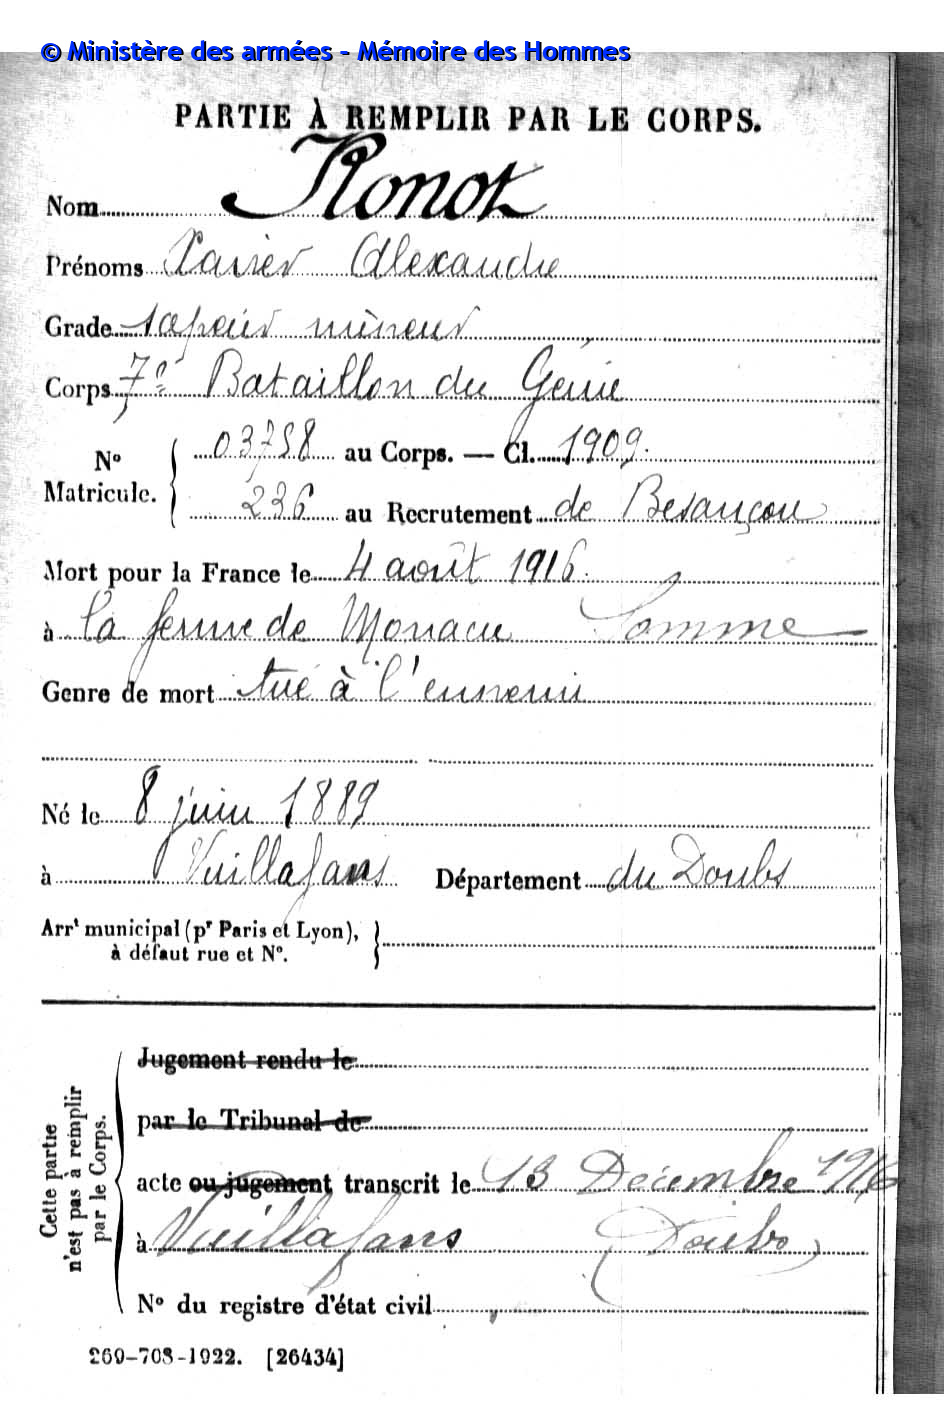 © Ministère des armées - Mémoire des Hommes
PARTIE À REMPLIR PAR LE CORPS.
Nom Ronot
Prénoms Xavier Alexandre
Grade sapeur mineur
Corps 7e Bataillon du Génie
N° Matricule. { 03758 au Corps. — Cl. 1909.
236 au Recrutement de Besançon
Mort pour la France le 4 août 1916.
à la ferme de Monacu Somme
Genre de mort tué à l'ennemi
Né le 8 juin 1889
à Vuillafans Département du Doubs
Arrt municipal (pr Paris et Lyon),
à défaut rue et N°.
Cette partie n'est pas à remplir par le Corps.
Jugement rendu le
par le Tribunal de
acte ou jugement transcrit le 13 Décembre 1916
à Vuillafans (Doubs)
N° du registre d'état civil
269-708-1922. [26434]